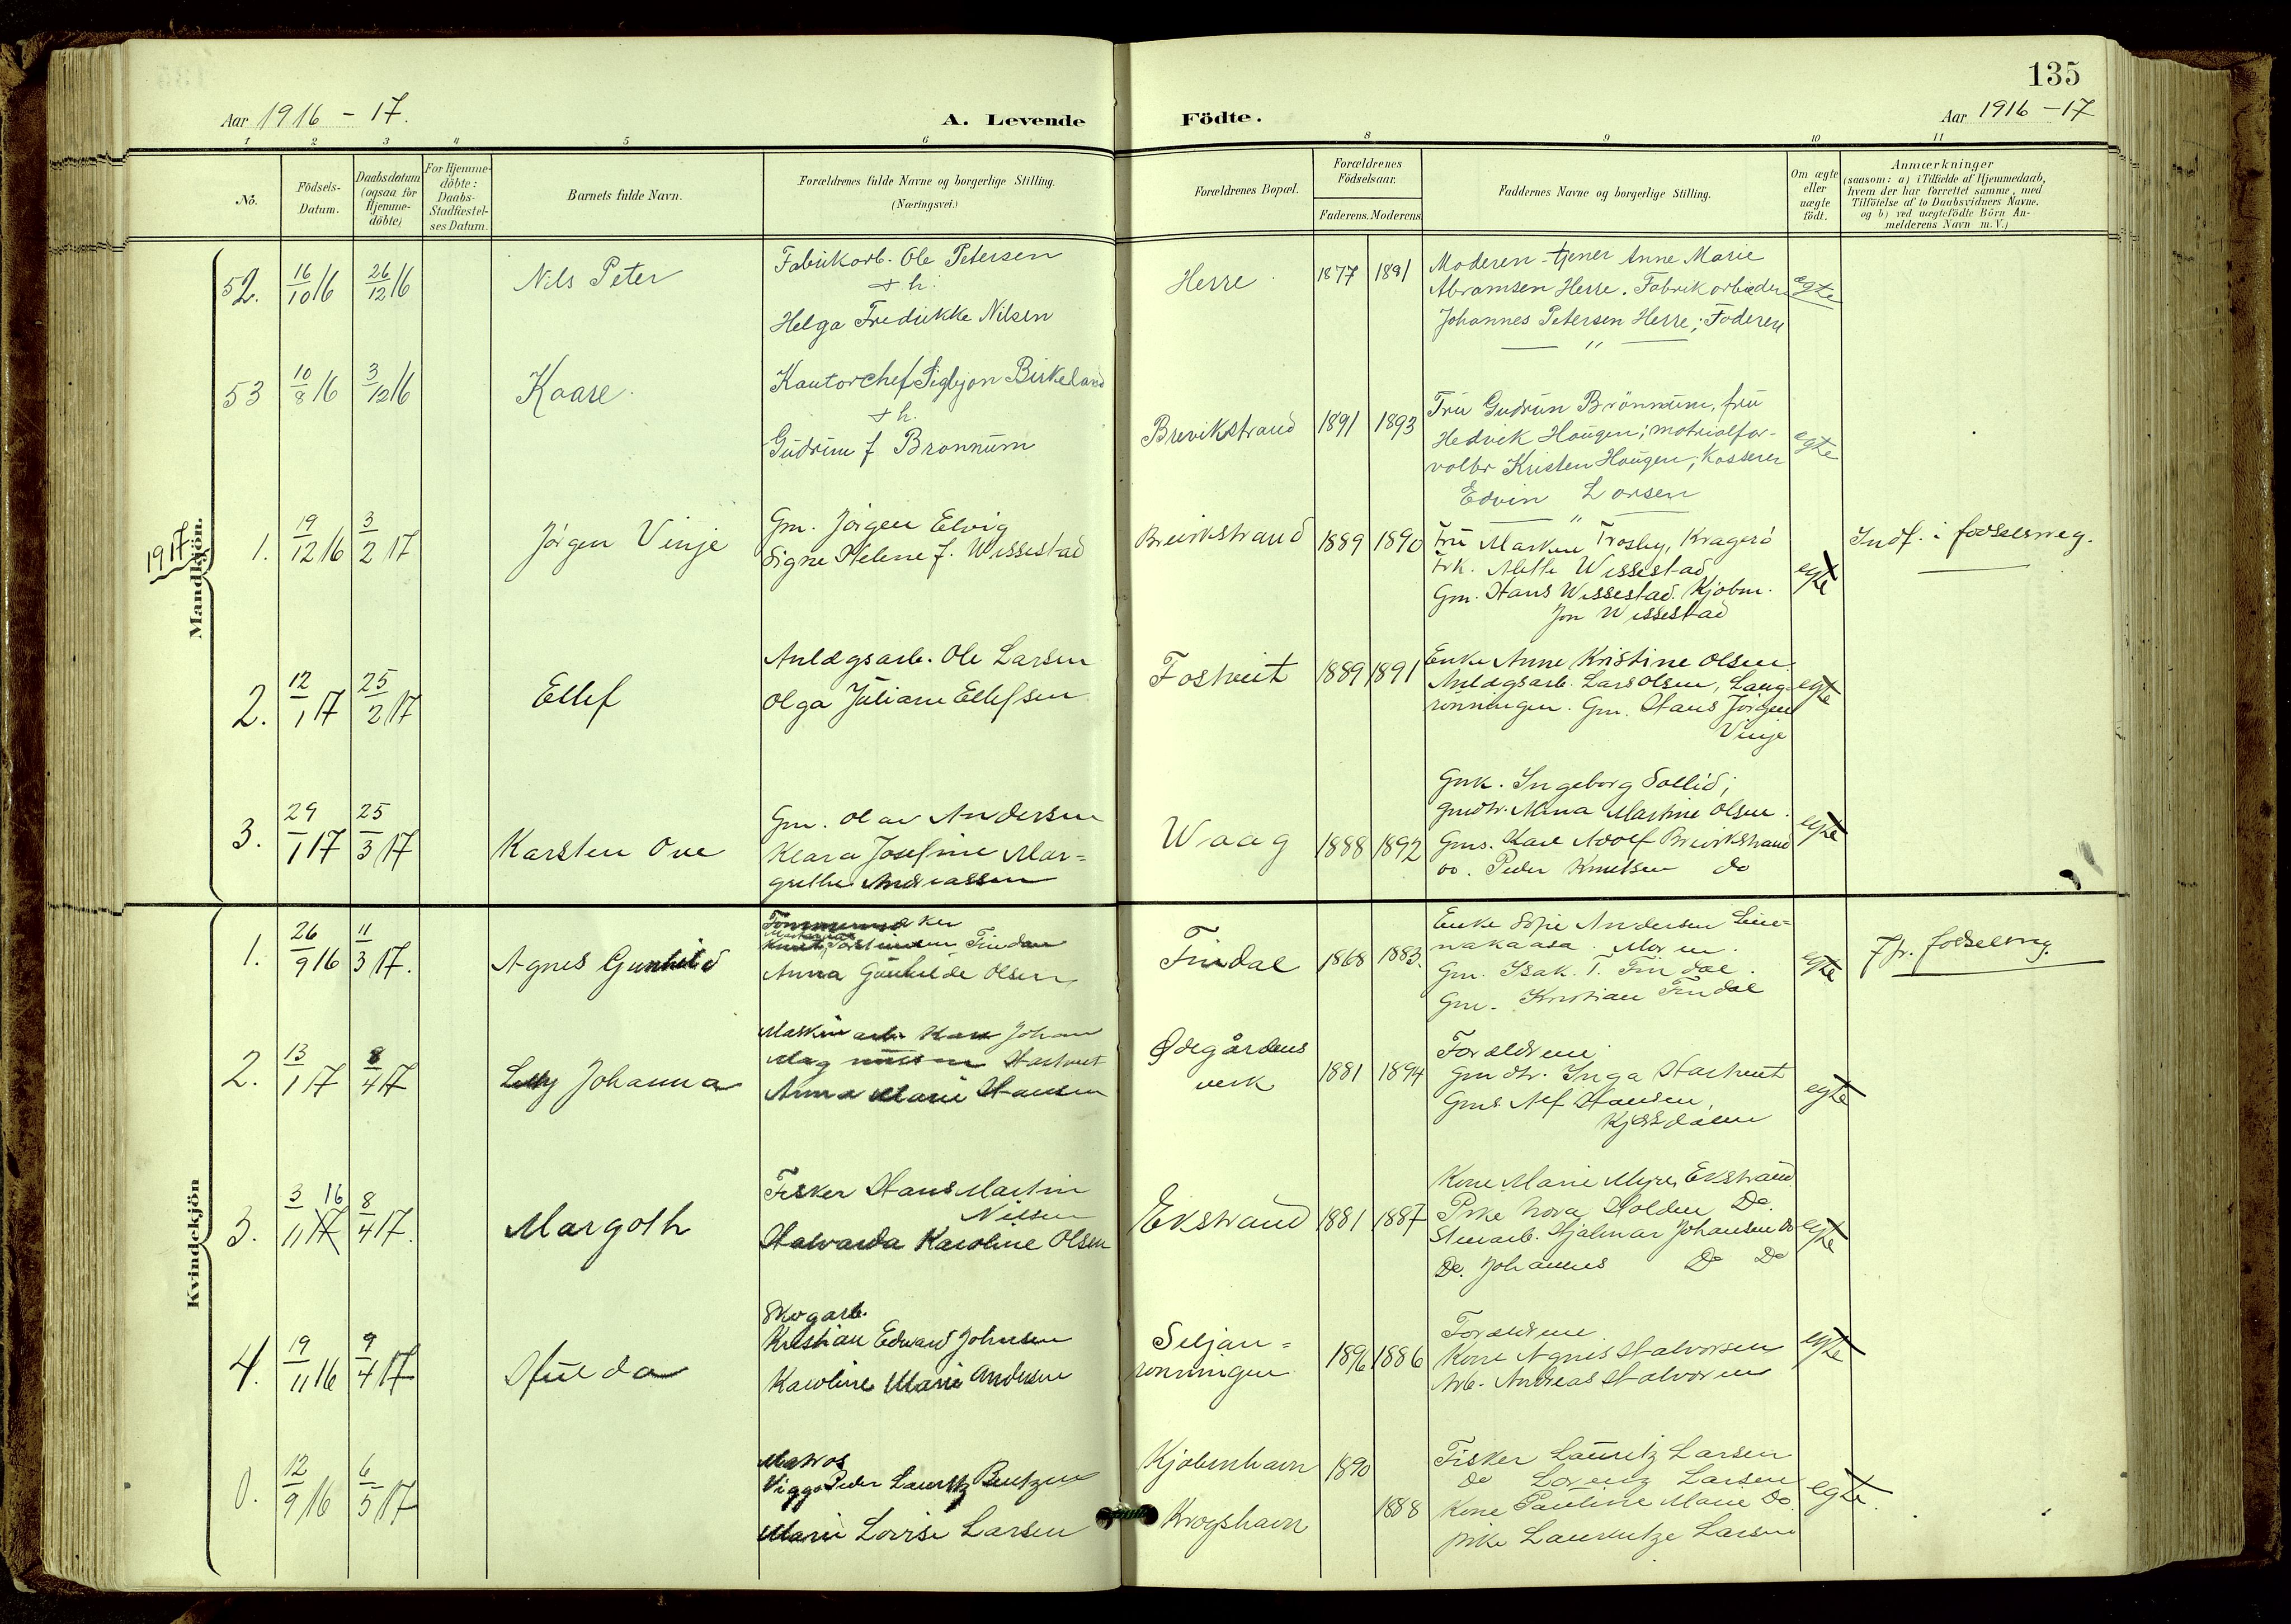 135
Aar 1916 - 17.
A. Levende
Födte.
Aar 1916 - 17
1 2 3 4 5 6 8 9 10 11
No.
Födsels-
Datum.
Daabsdatum
(ogsaa for
Hjemme-
döbte)
For Hjemme-
döbte:
Daabs-
Stadfæstel-
ses Datum.
Barnets fulde Navn.
Forældrenes fulde Navne og borgerlige Stilling.
(Næringsvei.)
Forældrenes Bopæl.
Forældrenes
Födselsaar.
Faderens. Moderens
Faddernes Navne og borgerlige Stilling.
Om ægte
eller
uægte
födt.
Anmærkninger
(saasom: a) i Tilfælde af Hjemmedaab,
hvem der har forrettet samme, med
Tilföielse af to Daabsvidners Navne.
og b) ved uægtefödte Börn An-
melderens Navn m. V.)
Mandkjön.
1917
52. 16/10 16 26/12 16 Nils Peter
Fabrikarb. Ole Petersen
+ h.
Helga Fredrikke Nilsen
Herre 1877 1891
Moderen - tjener Anne Marie
Abramsen Herre. Fabrikarbeider
Johannes Petersen Herre; Faderen
egte
53 10/8 16 3/12 16 Kaare.
Kontorchef Sigbjørn Birkeland
+ h.
Gudrun f Brønnum
Brevikstrand 1891 1893
Fru Gudrun Brönnum, fru
Hedvik Haugen; matrialfor-
valtr Kristen Haugen; Kasserer
Edvin Larsen
egte
1. 19/12 16 3/2 17 Jörgen Vinje
Gm. Jörgen Elvig
Signe Helene f. Wissestad
Brevikstrand 1889 1890
Fru Maren Trosby, Kragerö
Frk. Mette Wissestad
Gm. Hans Wissestad. Kjøbm.
Jon Wissestad
egte
Indf. i fødselsreg.
2. 12/1 17 25/2 17 Ellef
Anlægsarb. Ole Larsen
Olga Juliane Ellefsen
Fostveit 1889 1891
Enke Anne Kristine Olsen.
Anlægsarb. Lars Olsen, Lang-
rønningen. Gm. Hans Jörgen
Vinje
egte
3. 29/1 17 25/3 17 Karsten Ove
Gm. Olav Andersen
Klara Josefine Mar=
grethe Andreassen
Waag 1888 1892
Gmk. Ingeborg Sollid;
Gmdtr. Anna Martine Olsen.
Gms. Karl Adolf Brevikstrand
do. Peder Knutsen do
egte
Kvindekjön
1. 26/9 16 11/3 17. Agnes Gunhild
Tømmermand
Torstinsen Findal
Anna Gunhilde Olsen
Findal 1868 1883.
Enke Sofie Andersen
Moren.
Gm. Isak. T. Findal.
Gm. Kristian Findal
egte
fødselsreg.
2. 13/1 17 8/4 17 Johanna
Maskinarb. Karl Johan
Magnussen Hastveit
Anna Marie Hansen
Ødegårdens
verk 1881 1894
Forældrene.
Gmdtr. Inga Hastveit
Gms. Alf Hansen,
Kjøssdalen
egte
3. 3/11 17 16 8/4 17. Margoth
Fisker Hans Martin
Nilsen
Halvarda Karoline Olsen
Ekstrand 1881 1887
Kone Marie Myre, Ekstrand
Pike Nora Holden Do.
Stenarb. Hjalmar Johansen Do
Do. Johannes Do Do
egte
4. 19/11 16 9/4 17 Hulda
Skogarb.
Kristian Edvard Johnsen
Karoline Marie Andersen
Seljan=
rønningen 1896 1886
Forældrene
Kone Agnes Halvorsen
Arb. Andreas Halvorsen
egte
0. 12/9 16 6/5 17
Matros
Viggo Peder Lauritz Bentzen
Marie Lovise Larsen
Kjøbenhavn 1890
Krogshavn 1888
Fisker Lauritz Larsen
do Lorentz Larsen
Kone Pauline Marie Do.
pike Laurentze Larsen
egte.